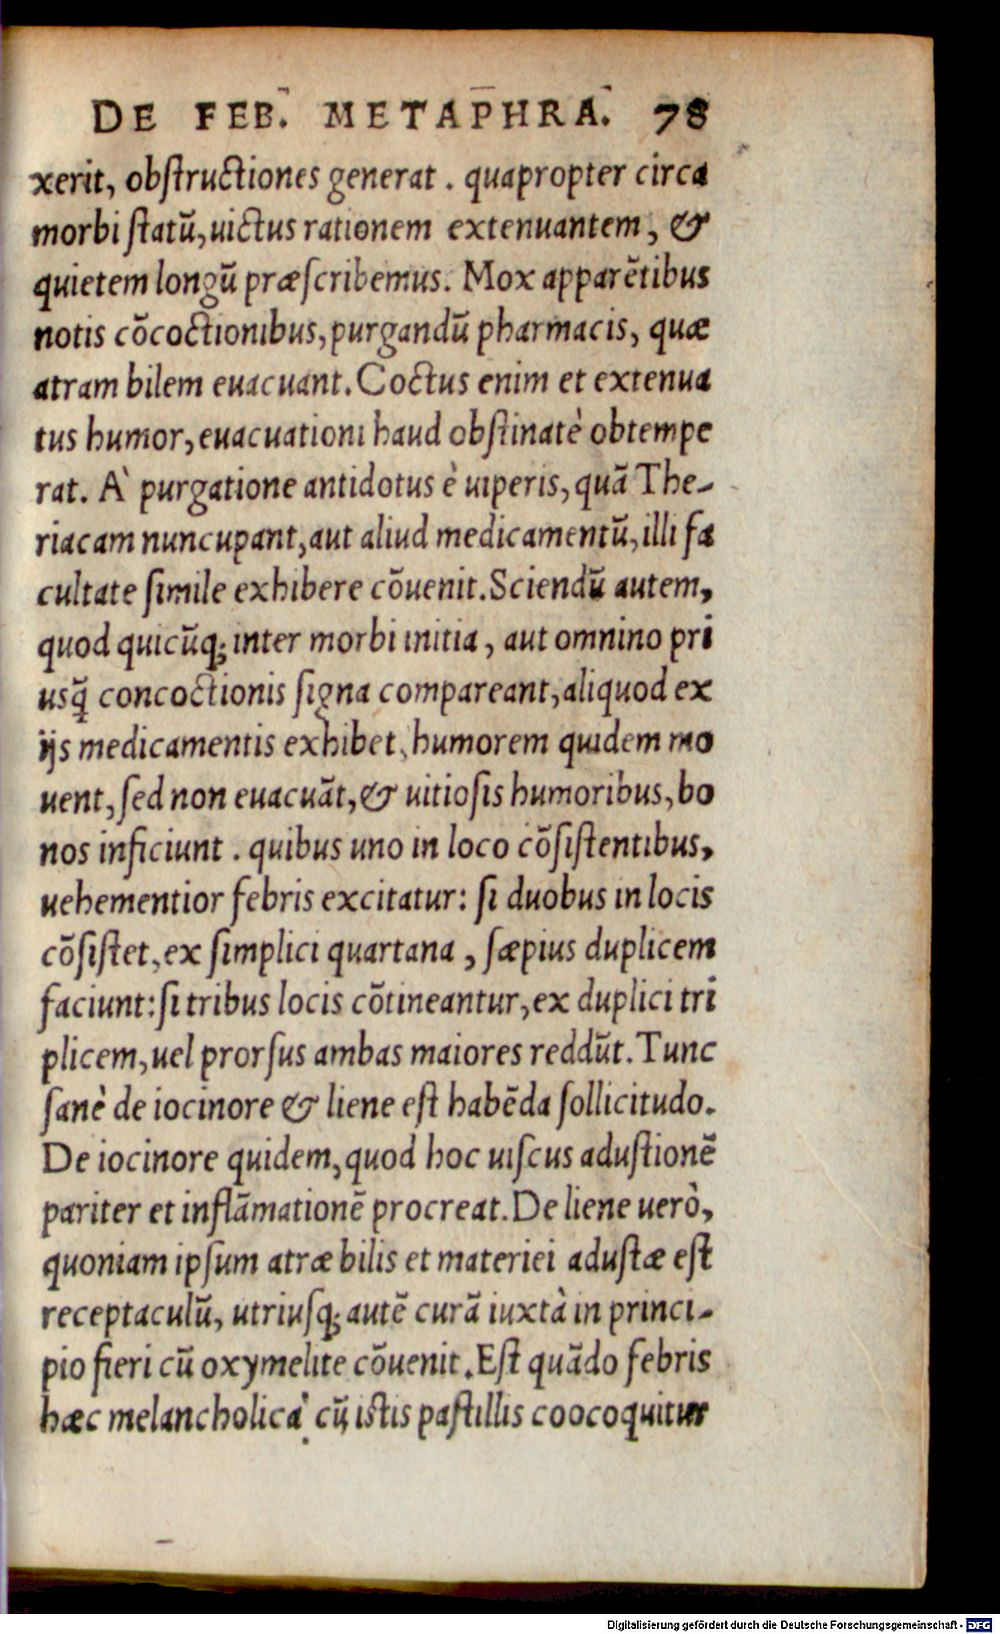 DE FEB. METAPHRA. 78
xerit, obstructiones generat . quapropter circa
morbi statū, uictus rationem extenuantem, &
quietem longū præscribemus. Mox apparētibus
notis cōcoctionibus, purgandū pharmacis, quæ
atram bilem euacuant. Coctus enim et extenua
tus humor, euacuationi haud obstinatè obtempe
rat. A` purgatione antidotus è uiperis, quā The-
riacam nuncupant, aut aliud medicamentū, illi fa
cultate simile exhibere cōuenit. Sciendū autem,
quod quicūq; inter morbi initia, aut omnino pri
usq̄ concoctionis signa compareant, aliquod ex
ijs medicamentis exhibet, humorem quidem mo
uent, sed non euacuāt, & uitiosis humoribus, bo
nos inficiunt . quibus uno in loco cōsistentibus,
uehementior febris excitatur: si duobus in locis
cōsistet, ex simplici quartana, sæpius duplicem
faciunt: si tribus locis cōtineantur, ex duplici tri
plicem, uel prorsus ambas maiores reddūt. Tunc
sanè de iocinore & liene est habēda sollicitudo.
De iocinore quidem, quod hoc uiscus adustionē
pariter et inflāmationē procreat. De liene uerò,
quoniam ipsum atræ bilis et materiei adustæ est
receptaculū, utriusq; autē curā iuxtà in princi-
pio fieri cū oxymelite cōuenit. Est quādo febris
hæc melancholica` cū istis pastillis coocoquitur
Digitalisierung gefördert durch die Deutsche Forschungsgemeinschaft - DFG